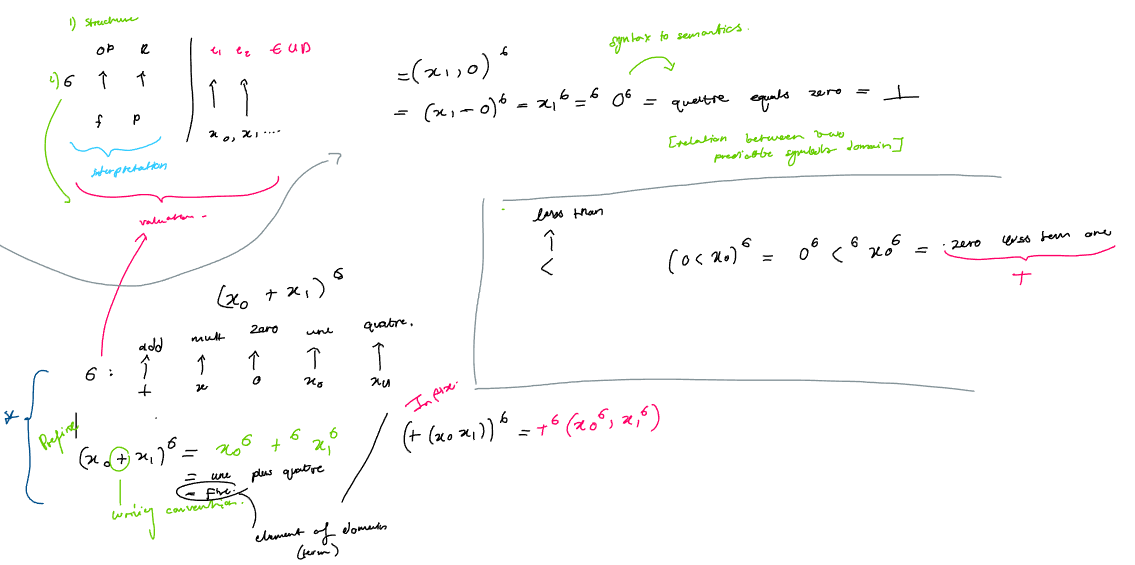 1) Structure
OP R
2) 6 ↑ ↑
f P
Interpretation
e₁ e₂ ∈ UD
↑ ↑
x₀, x₁ ....
valuation -
syntax to semantics.
= (x₁, 0)⁶
= (x₁ - 0)⁶ = x₁⁶ =⁶ 0⁶ = quattre equals zero = ⊥
[relation between two
predictbe symbols domain]
less than
↑
<
(0 < x₀)⁶ = 0⁶ <⁶ x₀⁶ = zero less tern one
T
(x₀ + x₁)⁶
add mult zero une quatre.
6 : ↑ ↑ ↑ ↑ ↑
+ x 0 x₀ x₁
*
Prefix
(x₀ + x₁)⁶ = x₀⁶ +⁶ x₁⁶
= une plus quatre
= Five.
writing convention.
element of domain
(term)
Infix.
(+ (x₀ x₁))⁶ = +⁶ (x₀⁶, x₁⁶)